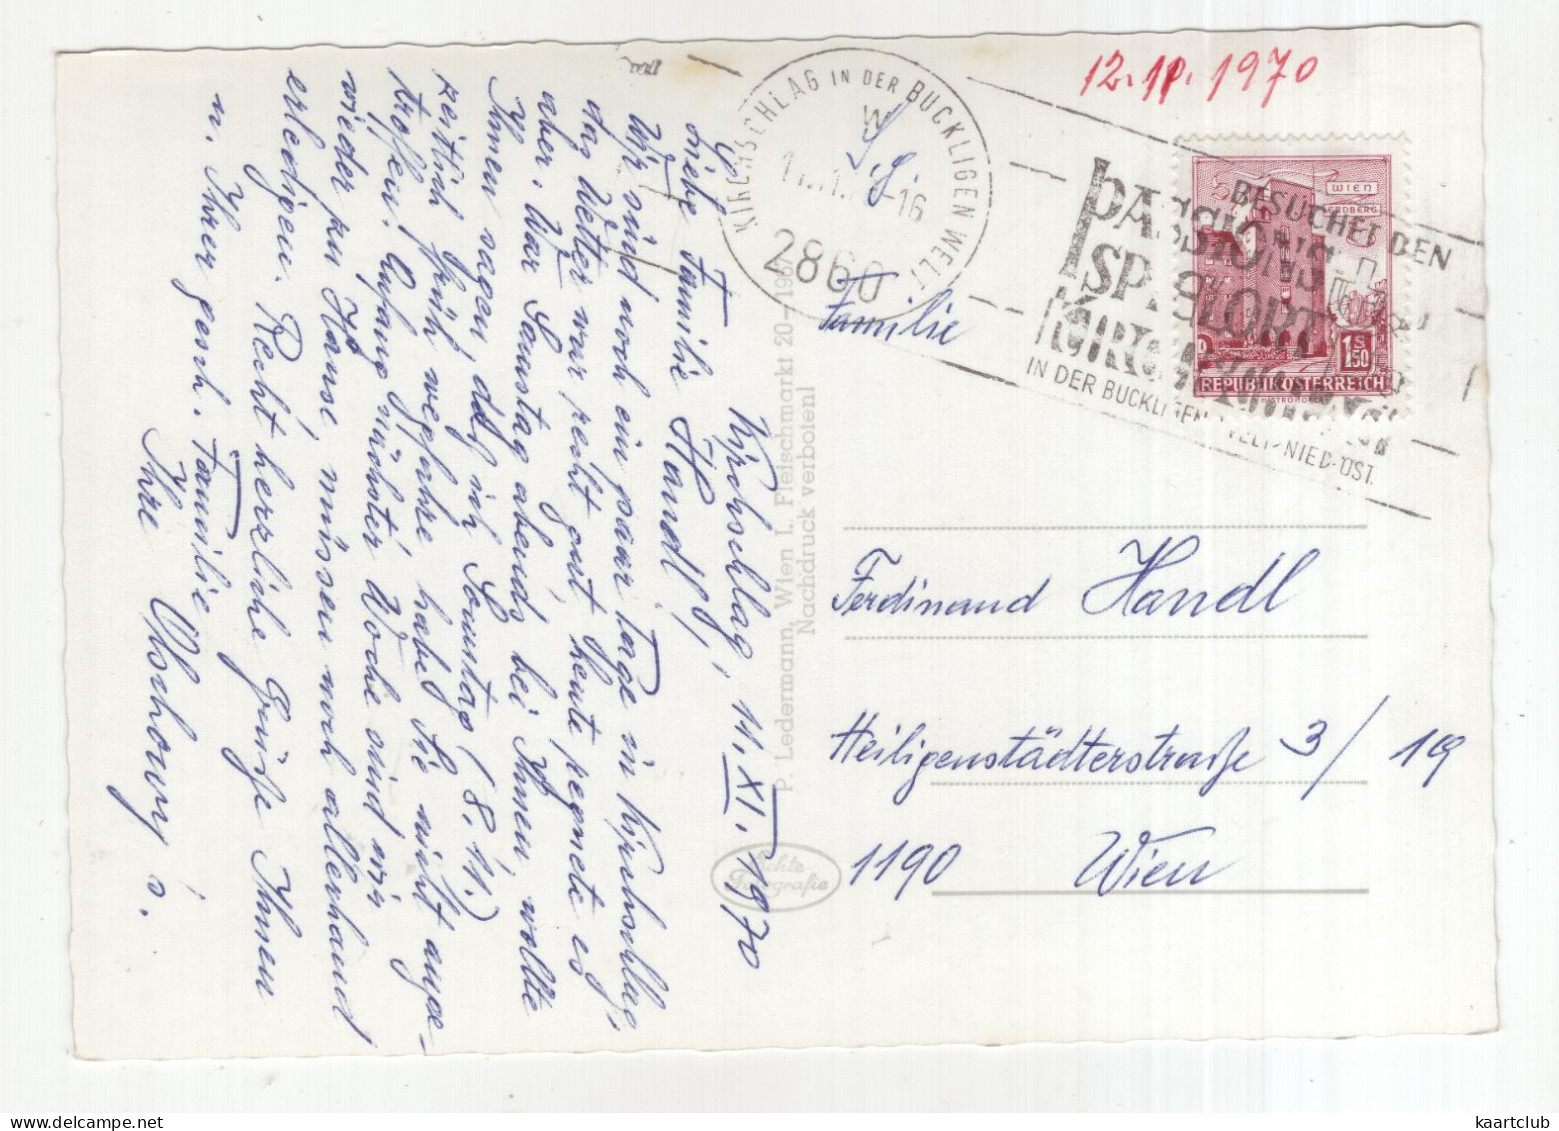 Kirchschlag, 11. XI. 1970
Liebe Familie Handl!
Wir sind noch ein paar Tage in Kirchschlag,
das Wetter war recht gut, heute regnete es
aber. War Samstag abends bei Ihnen, wollte
Ihnen sagen, daß ich Sonntag (8.11.)
zeitlich früh wegfahre, habe Sie nicht ange-
troffen. Anfang nächster Woche sind wir
wieder zu Hause, müssen noch allerhand
erledigen. Recht herzliche Grüße Ihnen
u. Ihrer gesch. Familie
Ihre
P. Ledermann, Wien I., Fleischmarkt 20 - 1967
Nachdruck verboten!
Echte
Fotografie
12. 11. 1970
KIRCHSCHLAG IN DER BUCKLIGEN WELT
-16
2860
BESUCHET DEN
PASSIONS
SPIELORT
KIRCHSCHLAG
IN DER BUCKLIGEN WELT-NIED-ÖST.
WIEN
ERDBERG
S
1.50
REPUBLIK ÖSTERREICH
S.g.
Familie
Ferdinand Handl
Heiligenstädterstraße 3/19
1190 Wien
kaartclub